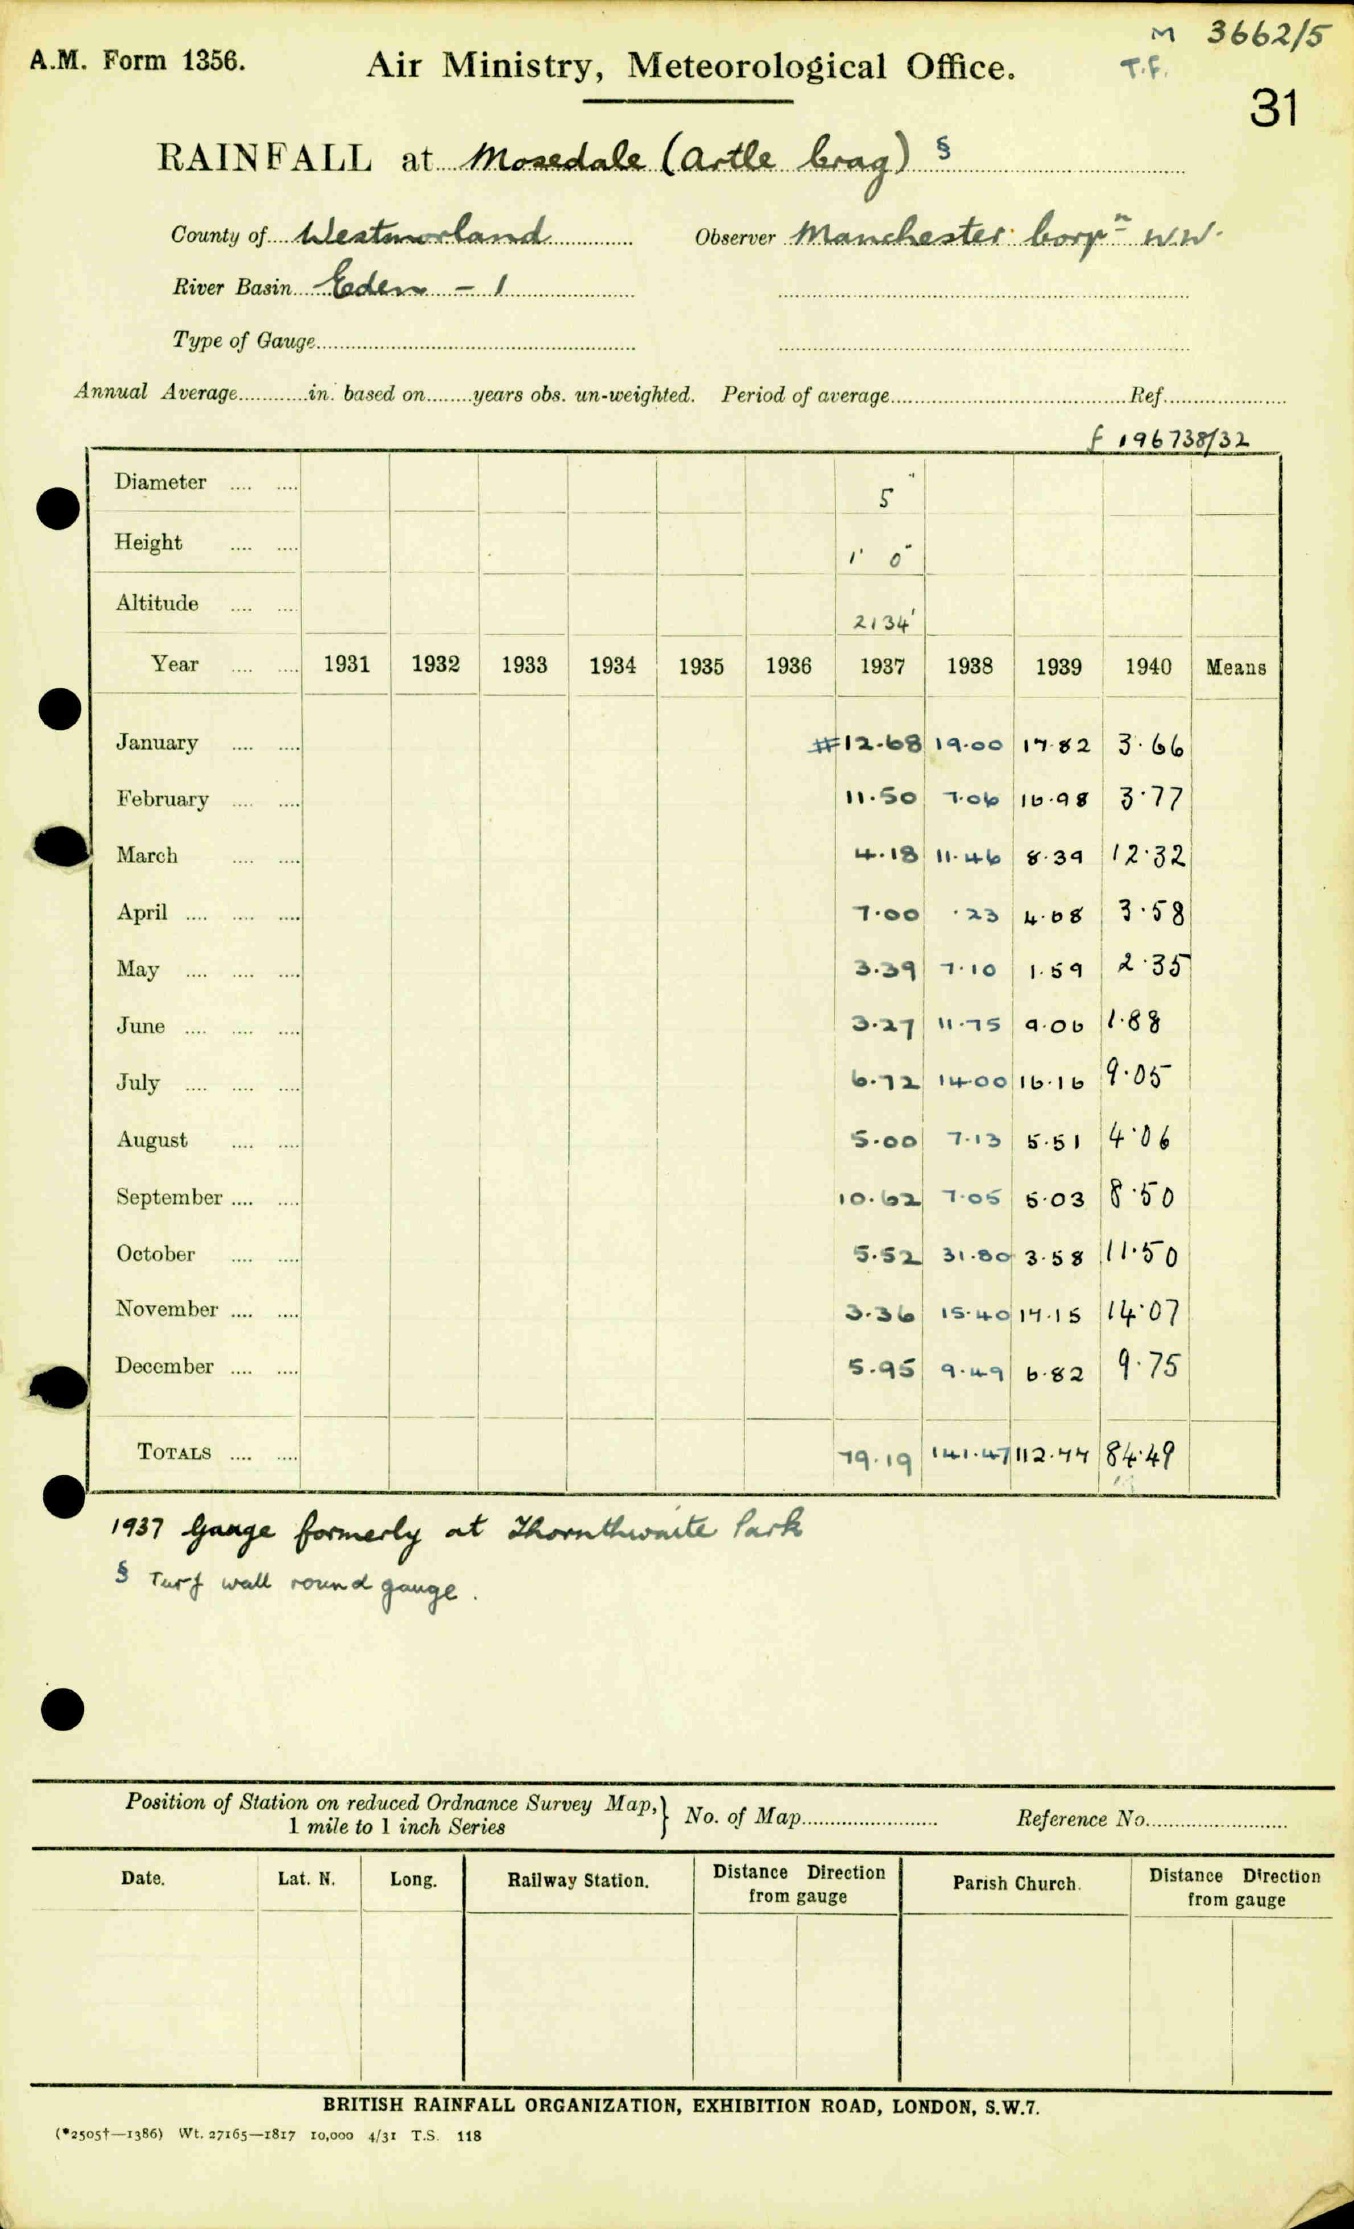 M 3662/5
A.M. Form 1356. Air Ministry, Meteorological Office. T.F.
31
RAINFALL at Mosedale (Artle Crag) §
County of Westmorland Observer Manchester Corpn W.W.
River Basin Eden - 1
Type of Gauge
Annual Average in. based on years obs. un-weighted. Period of average Ref.
f 196738/32
Diameter 5"
Height 1' 0"
Altitude 2134'
Year 1931 1932 1933 1934 1935 1936 1937 1938 1939 1940 Means
January #12.68 19.00 17.82 3.66
February 11.50 7.06 16.98 3.77
March 4.18 11.46 8.39 12.32
April 7.00 .23 4.68 3.58
May 3.39 7.10 1.59 2.35
June 3.27 11.75 9.06 1.88
July 6.72 14.00 16.16 9.05
August 5.00 7.13 5.51 4.06
September 10.62 7.05 5.03 8.50
October 5.52 31.80 3.58 11.50
November 3.36 15.40 17.15 14.07
December 5.95 9.49 6.82 9.75
TOTALS 79.19 141.47 112.77 84.49
1937 Gauge formerly at Thornthwaite Park
§ Turf wall round gauge.
Position of Station on reduced Ordnance Survey Map, 1 mile to 1 inch Series } No. of Map Reference No.
Date. Lat. N. Long. Railway Station. Distance Direction from gauge Parish Church. Distance Direction from gauge
BRITISH RAINFALL ORGANIZATION, EXHIBITION ROAD, LONDON, S.W.7.
(*2505†—1386) Wt. 27165—1817 10,000 4/31 T.S. 118